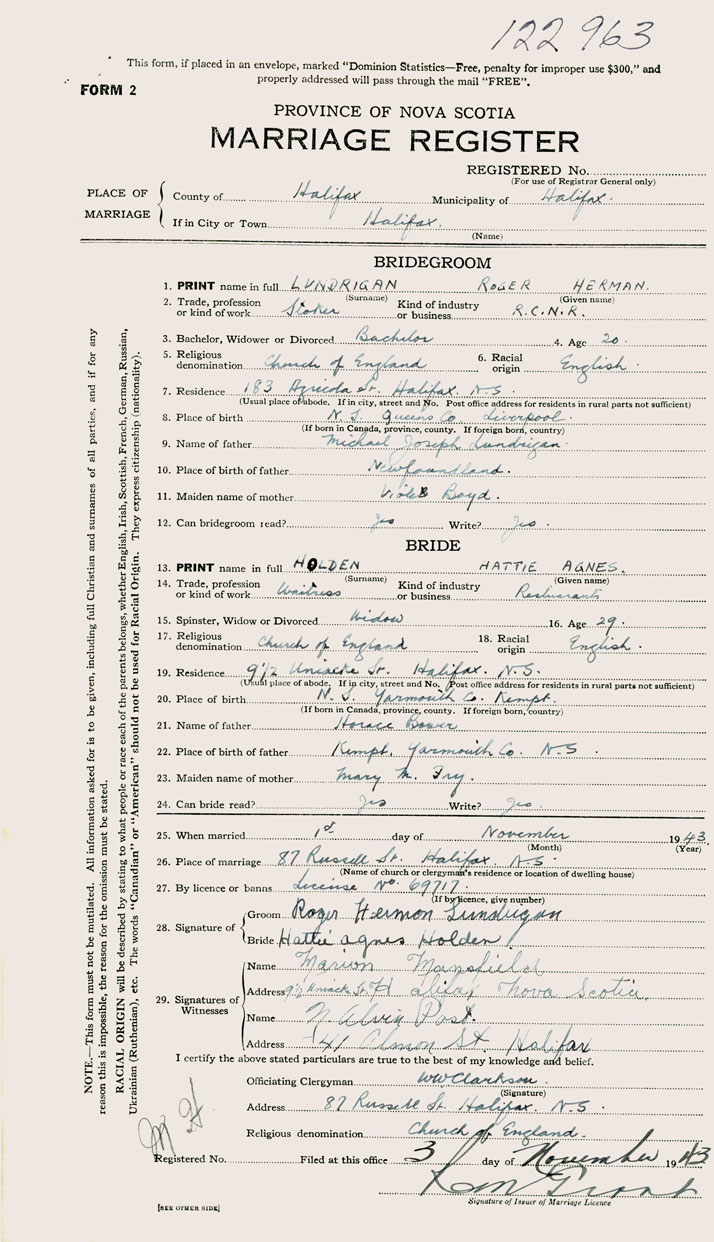 122963
This form, if placed in an envelope, marked “Dominion Statistics—Free, penalty for improper use $300,” and
properly addressed will pass through the mail “FREE”.
FORM 2
PROVINCE OF NOVA SCOTIA
MARRIAGE REGISTER
REGISTERED No.
(For use of Registrar General only)
PLACE OF MARRIAGE
County of Halifax Municipality of Halifax.
If in City or Town Halifax.
(Name)
BRIDEGROOM
1. PRINT name in full LUNDRIGAN ROGER HERMAN.
(Surname) (Given name)
2. Trade, profession or kind of work Stoker Kind of industry or business R.C.N.R.
3. Bachelor, Widower or Divorced Bachelor 4. Age 20.
5. Religious denomination Church of England 6. Racial origin English.
7. Residence 183 Agricola St. Halifax. N.S.
(Usual place of abode. If in city, street and No. Post office address for residents in rural parts not sufficient)
8. Place of birth N.S. Queens Co. Liverpool.
(If born in Canada, province, county. If foreign born, country)
9. Name of father Michael Joseph Lundrigan.
10. Place of birth of father Newfoundland.
11. Maiden name of mother Violet Boyd.
12. Can bridegroom read? Yes Write? Yes.
BRIDE
13. PRINT name in full HOLDEN HATTIE AGNES.
(Surname) (Given name)
14. Trade, profession or kind of work Waitress Kind of industry or business Restaurants
15. Spinster, Widow or Divorced Widow 16. Age 29.
17. Religious denomination Church of England 18. Racial origin English.
19. Residence 9½ Uniacke St. Halifax. N.S.
(Usual place of abode. If in city, street and No. Post office address for residents in rural parts not sufficient)
20. Place of birth N.S. Yarmouth Co. Kempt.
(If born in Canada, province, county. If foreign born, country)
21. Name of father Horace Bower
22. Place of birth of father Kempt, Yarmouth Co. N.S.
23. Maiden name of mother Mary M. Fry.
24. Can bride read? Yes Write? Yes.
25. When married 1st day of November 1943.
(Month) (Year)
26. Place of marriage 87 Russell St. Halifax. N.S.
(Name of church or clergyman's residence or location of dwelling house)
27. By licence or banns License No. 69717.
(If by licence, give number)
28. Signature of
Groom Roger Hermon Lundrigan
Bride Hattie Agnes Holden
29. Signatures of Witnesses
Name Marion Mansfield
Address 9½ Uniack St. Halifax Nova Scotia.
Name N Alvin Post.
Address 41 Almon St. Halifax
I certify the above stated particulars are true to the best of my knowledge and belief.
Officiating Clergyman WWClarkson.
(Signature)
Address 87 Russell St. Halifax. N.S.
Religious denomination Church of England.
Registered No. Filed at this office 3 day of November 1943
Grant
Signature of Issuer of Marriage Licence
[SEE OTHER SIDE]
NOTE.—This form must not be mutilated. All information asked for is to be given, including full Christian and surnames of all parties, and if for any
reason this is impossible, the reason for the omission must be stated.
RACIAL ORIGIN will be described by stating to what people or race each of the parents belongs, whether English, Irish, Scottish, French, German, Russian,
Ukrainian (Ruthenian), etc. The words “Canadian” or “American” should not be used for Racial Origin. They express citizenship (nationality).